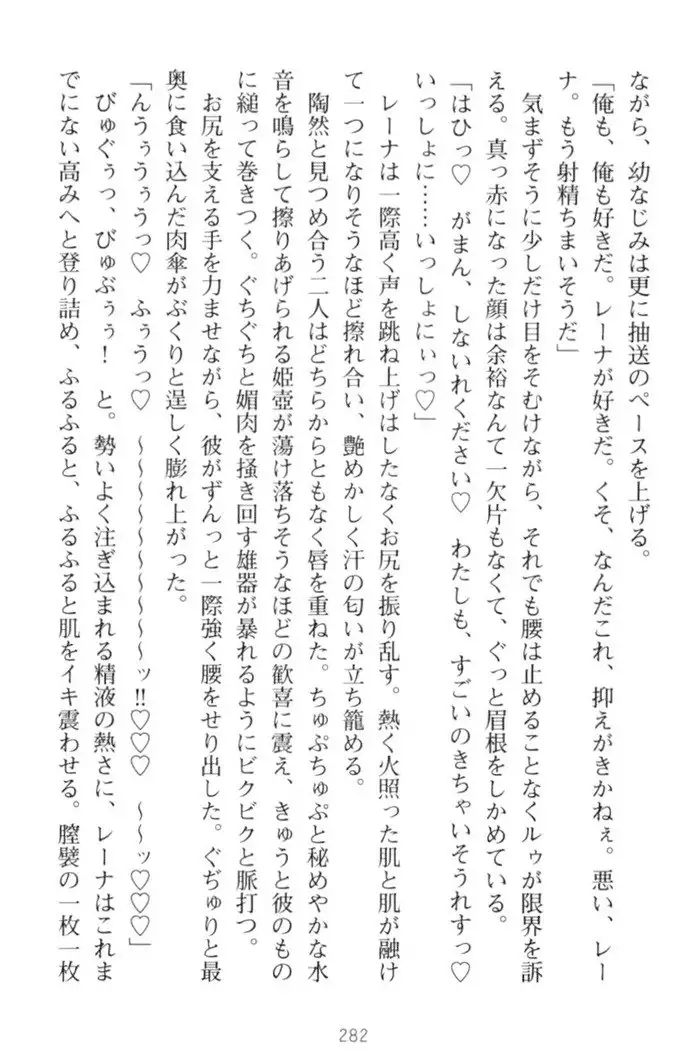 ながら、幼なじみは更に抽送のペースを上げる。
「俺も、俺も好きだ。レーナが好きだ。くそ、なんだこれ、抑えがきかねぇ。悪い、レー
ナ。もう射精ちまいそうだ」
気まずそうに少しだけ目をそむけながら、それでも腰は止めることなくルゥが限界を訴
える。真っ赤になった顔は余裕なんて一欠片もなくて、ぐっと眉根をしかめている。
「はひっ♡　がまん、しないれください♡　わたしも、すごいのきちゃいそうれすっ♡
いっしょに……いっしょにぃっ♡」
レーナは一際高く声を跳ね上げはしたなくお尻を振り乱す。熱く火照った肌と肌が融け
て一つになりそうなほど擦れ合い、艶めかしく汗の匂いが立ち籠める。
陶然と見つめ合う二人はどちらからともなく唇を重ねた。ちゅぷちゅぷと秘めやかな水
音を鳴らして擦りあげられる姫壺が蕩け落ちそうなほどの歓喜に震え、きゅうと彼のもの
に縋って巻きつく。ぐちぐちと媚肉を掻き回す雄器が暴れるようにビクビクと脈打つ。
お尻を支える手を力ませながら、彼がずんっと一際強く腰をせり出した。ぐぢゅりと最
奥に食い込んだ肉傘がぶくりと逞しく膨れ上がった。
「んうぅうぅうっ♡　ふぅうっ♡　～～～～～～～～～ッ!!♡♡♡　～～ッ♡♡♡」
びゅぐぅっ、びゅぶぅぅ！　と。勢いよく注ぎ込まれる精液の熱さに、レーナはこれま
でにない高みへと登り詰め、ふるふると、ふるふると肌をイキ震わせる。膣襞の一枚一枚
282